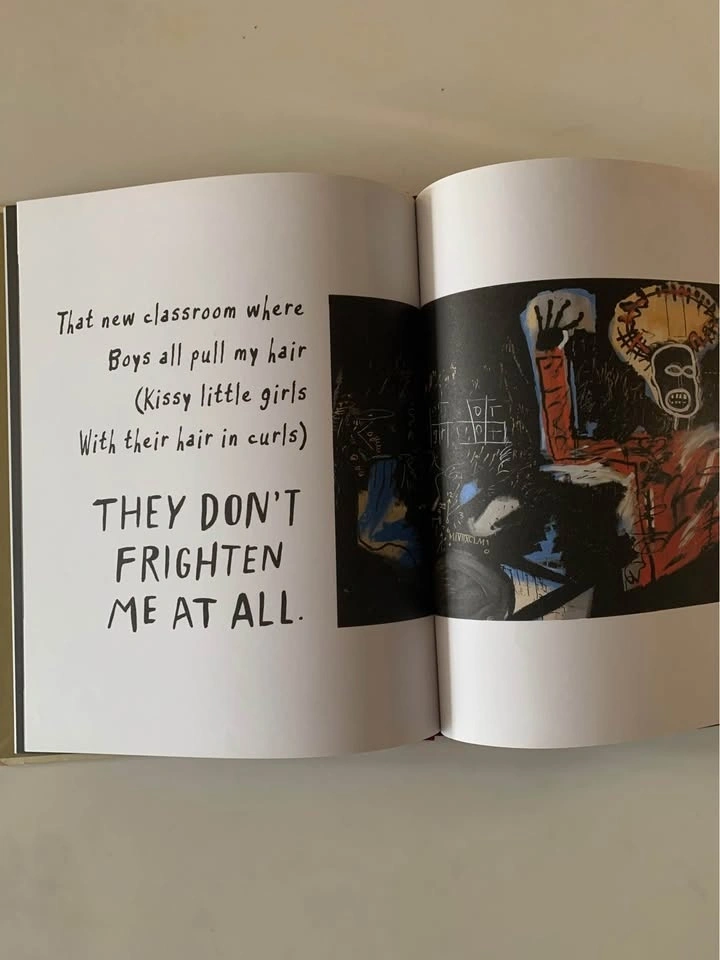 That new classroom where
Boys all pull my hair
(Kissy little girls
With their hair in curls)
THEY DON'T
FRIGHTEN
ME AT ALL.